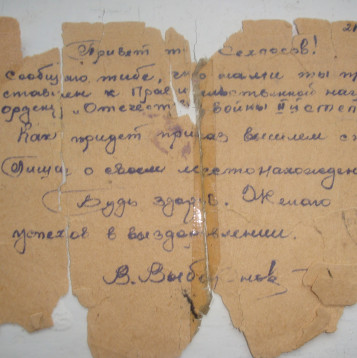 21
Привет т Селхосов!
сообщаю тебе, что нами ты т
ставлен к Прав и льственной наг
орден „Отечеств войны II степ
Как придет приказ вышлем с
Пиши о своем местонахожден
Будь здоров. Желаю
успехов в выздоровлении.
В. Выбо нов